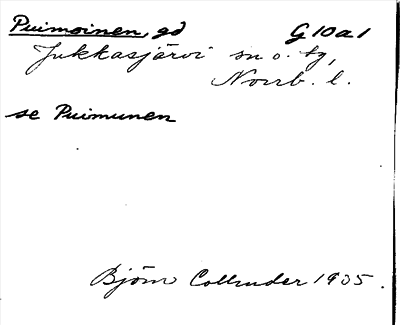 Puimoinen, gd G10a1
Jukkasjärvi sn o. tg,
Norrb. l.
se Puimunen
Björn Collinder 1935.